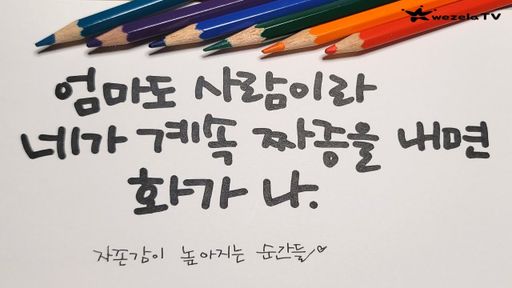 wezela TV
엄마도 사람이라
네가 계속 짜증을 내면
화가 나.
자존감이 높아지는 순간들♡